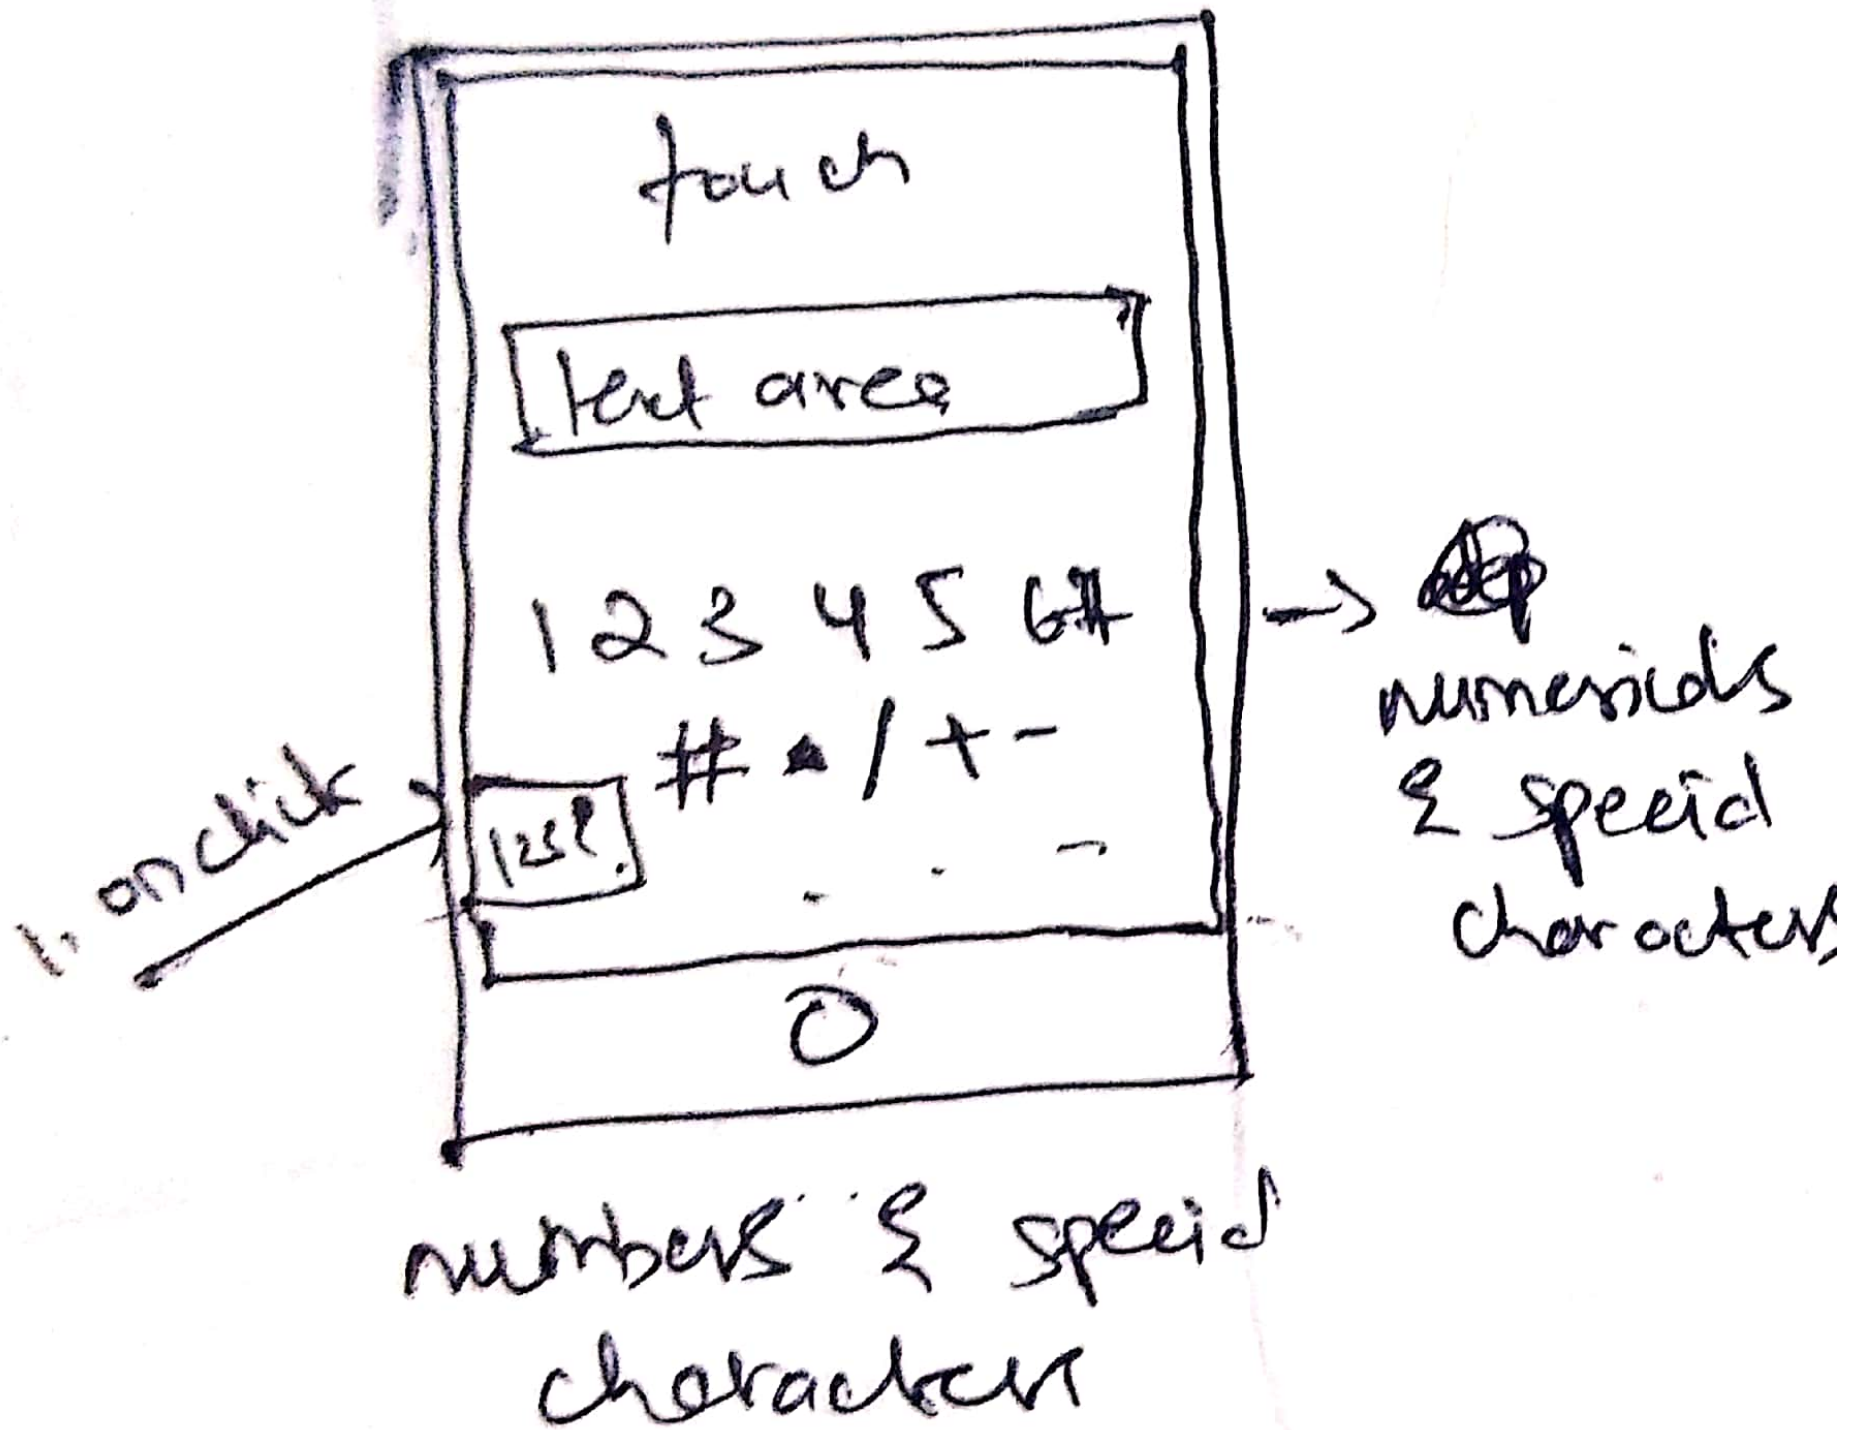 touch
text area
1 2 3 4 5 6 #
# * / + -
1. onclick
→
numericals
& special
characters
numbers & special
characters